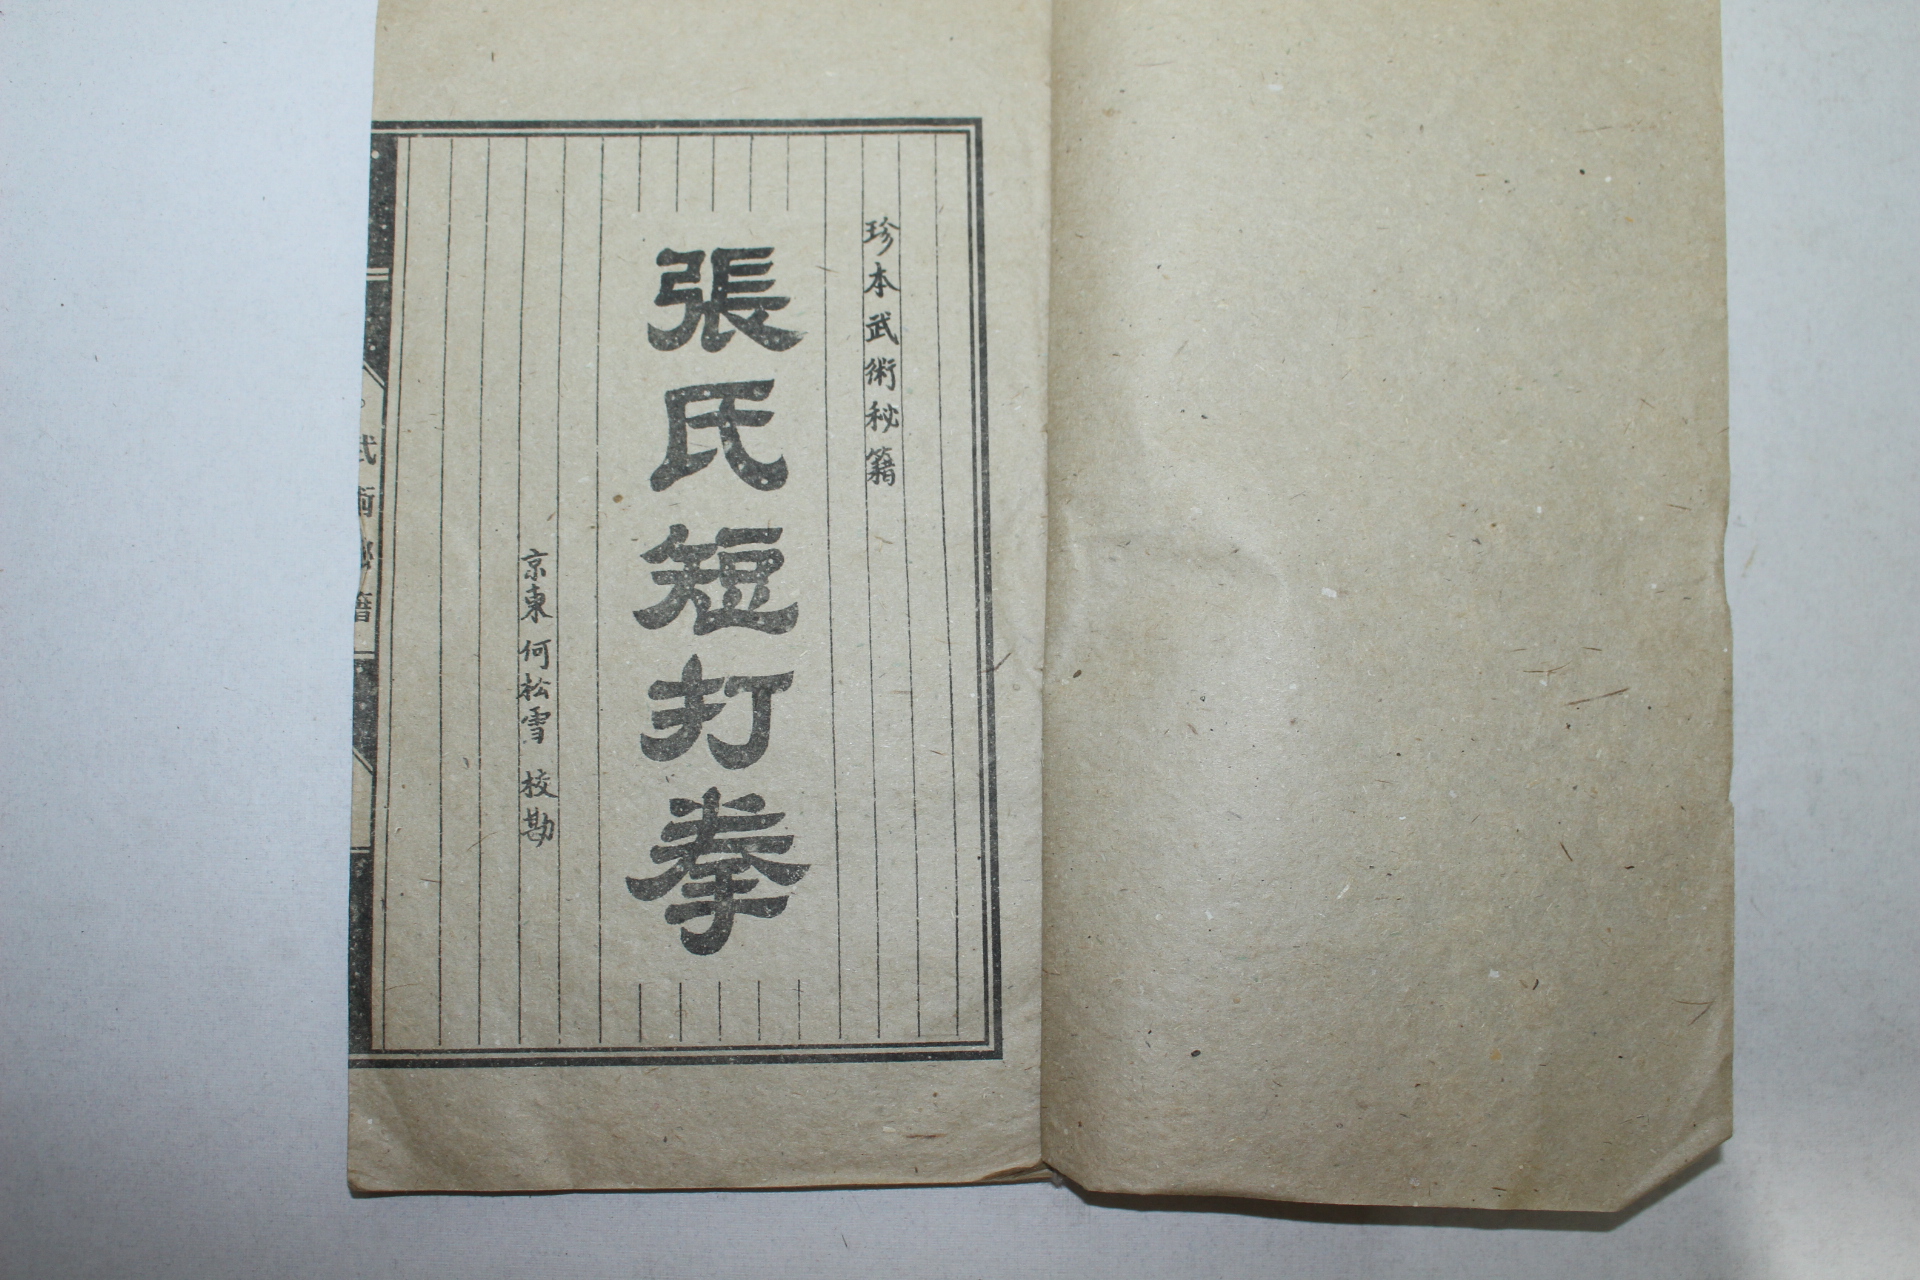 珍本武術秘籍
張氏短打拳
京東何松雪校勘
武術秘籍